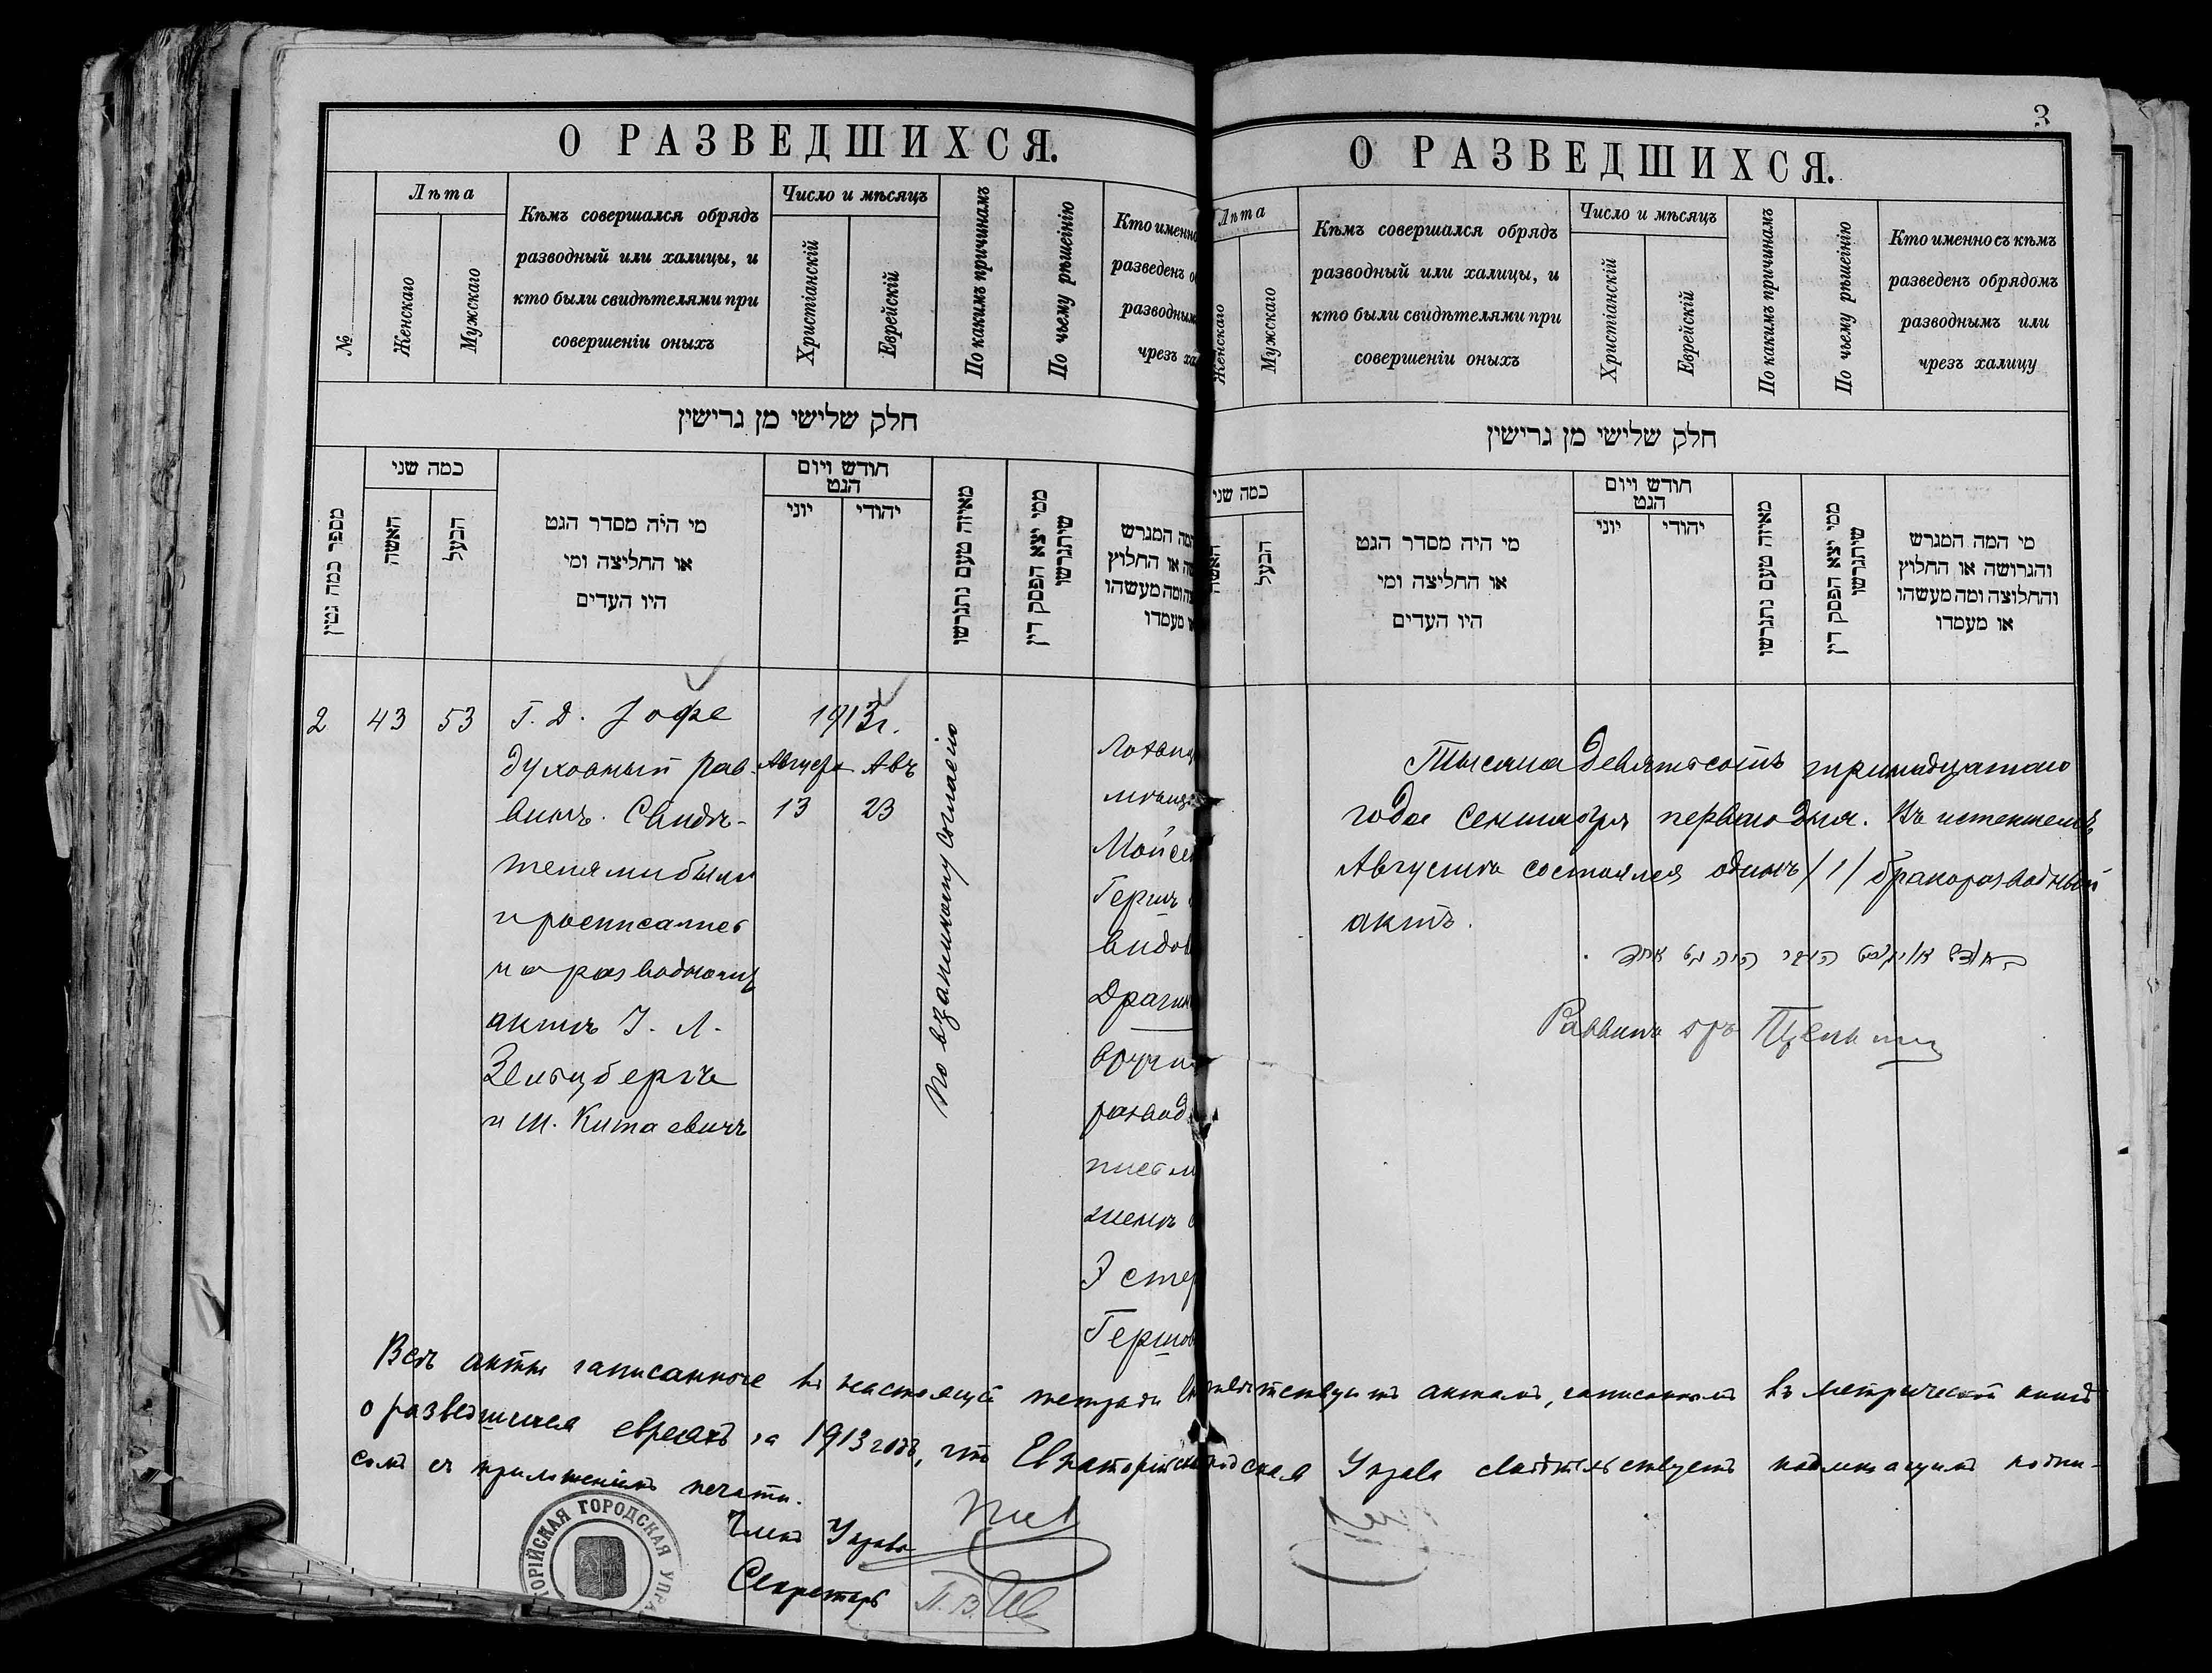 О РАЗВЕДШИХСЯ.
№
Лѣта
Женскаго
Мужскаго
Кѣмъ совершался обрядъ
разводный или халицы, и
кто были свидѣтелями при
совершеніи оныхъ
Число и мѣсяцъ
Христіанскій
Еврейскій
По какимъ причинамъ
По чьему рѣшенію
Кто именно
разведенъ
разводным
чрезъ
חלק שלישי מן גרישין
מספר כמה גטין
כמה שני
האשה
הבעל
מי היה מסדר הגט
או החליצה ומי
היו העדים
חודש ויום
הגט
יוני
יהודי
מאיזה טעם נתגרשו
ממי יצא הפסק דין
שיתגרשו
המה המגרש
או החלוץ
ומה מעשהו
מעמדו
2
43
53
Г. Д. Іофе
духовный рав-
винъ. Свидѣ-
телями были
и росписались
на разводномъ
актѣ І. Л.
Зельцбергъ
и Ш. Китаевичъ
1913 г.
Августа Авъ
13 23
По взаимному согласію
Мойсе
Гершъ
видов
Драгин
вручи
развод
письм
женѣ
Эстер
Гершов
3
О РАЗВЕДШИХСЯ.
Лѣта
Женскаго
Мужскаго
Кѣмъ совершался обрядъ
разводный или халицы, и
кто были свидѣтелями при
совершеніи оныхъ
Число и мѣсяцъ
Христіанскій
Еврейскій
По какимъ причинамъ
По чьему рѣшенію
Кто именно съ кѣмъ
разведенъ обрядомъ
разводнымъ или
чрезъ халицу
חלק שלישי מן גרישין
כמה שני
האשה
הבעל
מי היה מסדר הגט
או החליצה ומי
היו העדים
חודש ויום
הגט
יוני
יהודי
מאיזה טעם נתגרשו
ממי יצא הפסק דין
שיתגרשו
מי המה המגרש
והגרושה או החלוץ
והחלוצה ומה מעשהו
או מעמדו
Тысяча девятьсотъ тринадцатаго
года сентября перваго дня. Въ истекшемъ
Августѣ состоялся одинъ /1/ бракоразводный
актъ.
היה גט אחד
Раввинъ
Всѣ акты записанные въ настоящей тетради соотвѣтствуютъ актамъ, записаннымъ въ метрической книгѣ
о разведшихся евреяхъ за 1913 годъ, что Евпаторійская Городская Управа свидѣтельствуетъ надлежащимъ подпи-
сомъ съ приложеніемъ печати.
ТОРІЙСКАЯ ГОРОДСКАЯ УПРА
Членъ Управы
Секретарь